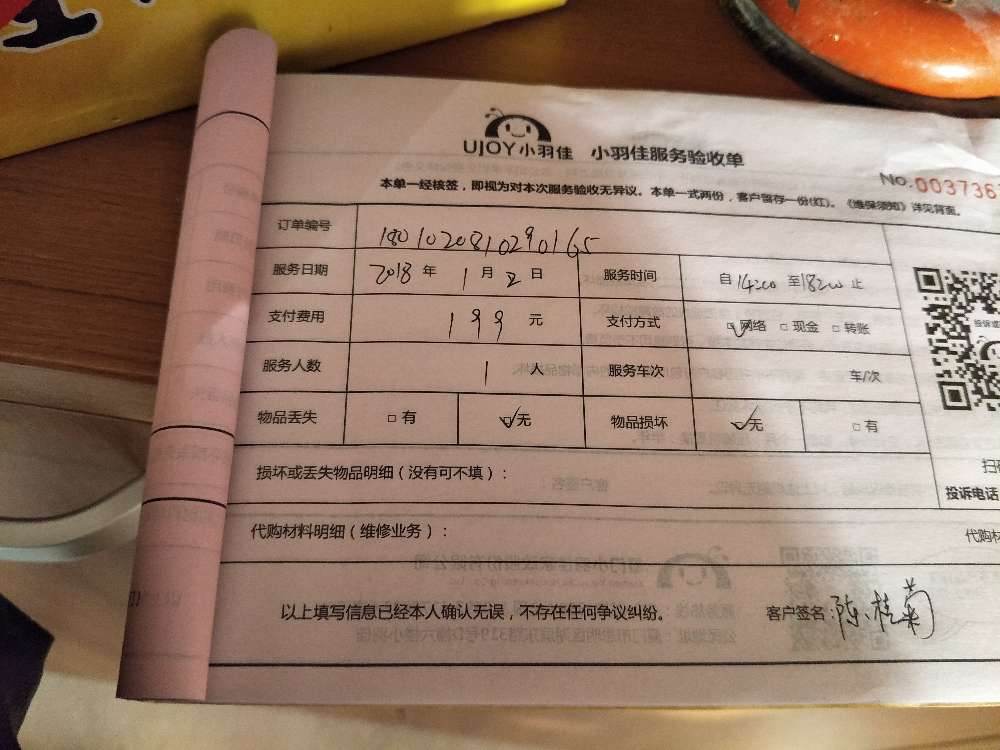 UJOY小羽佳 小羽佳服务验收单
No.003736
本单一经核签，即视为对本次服务验收无异议。本单一式两份，客户留存一份(红)。《维保须知》详见背面。
订单编号 1801020810290165
服务日期 2018 年 1 月 2 日 服务时间 自 14:00 至 18:00 止
支付费用 199 元 支付方式 ☑网络 □现金 □转账
服务人数 1 人 服务车次 车/次
物品丢失 □有 ☑无 物品损坏 ☑无 □有
损坏或丢失物品明细（没有可不填）：
扫
投诉电话
代购材料明细（维修业务）： 代购材
以上填写信息已经本人确认无误，不存在任何争议纠纷。 客户签名：陈桂菊